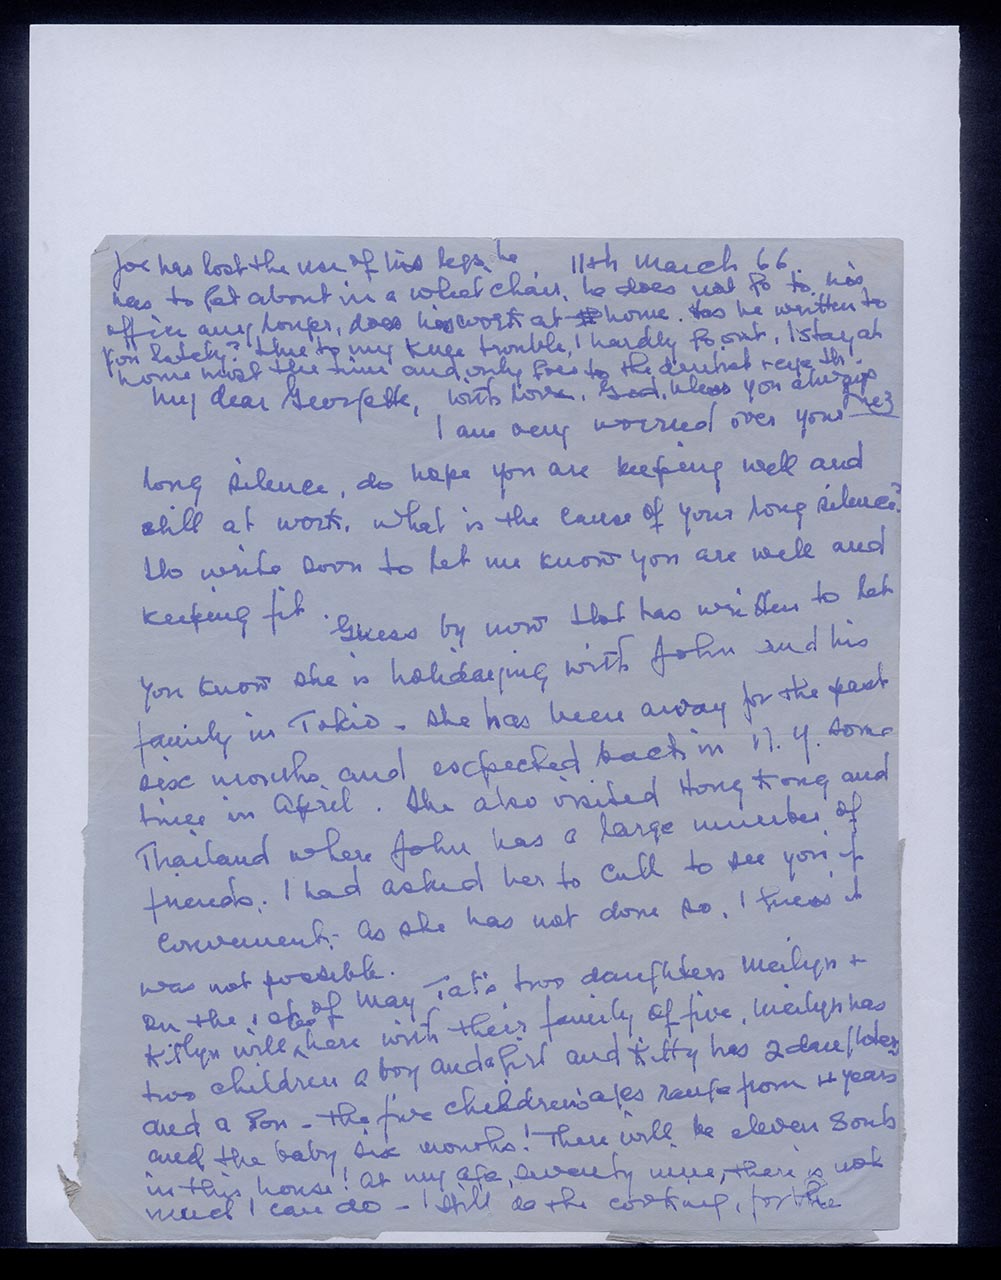 Joe has lost the use of his legs, he
11th March 66
has to get about in a wheel chair, he does not go to his
office any longer, does his work at home. Has he written to
you lately? Due to my knee trouble, I hardly go out, I stay at
home most the time and only goes to the dentist
My dear Georgette, with love, God bless you always
I am very worried over your
long silence, do hope you are keeping well and
still at work. What is the cause of your long silence?
Do write soon to let me know you are well and
keeping fit.
Guess by now that has written to let
you know she is holidaying with John and his
family in Tokio - She has been away for the past
six months and expected back in N.Y. some
time in April. She also visited Hong Kong and
Thailand where John has a large number of
friends. I had asked her to call to see you if
convenient. As she has not done so, I guess it
was not possible.
On the of May Tat's two daughters Meilyn +
Kitlyn will be here with their family of five, Meilyn has
two children a boy and a girl and Kitty has 2 daughters
and a son - the five children's ages range from 4 years
and the baby six months! There will be eleven souls
in this house! At my age, seventy nine, there is not
much I can do - I still do the cooking, for the